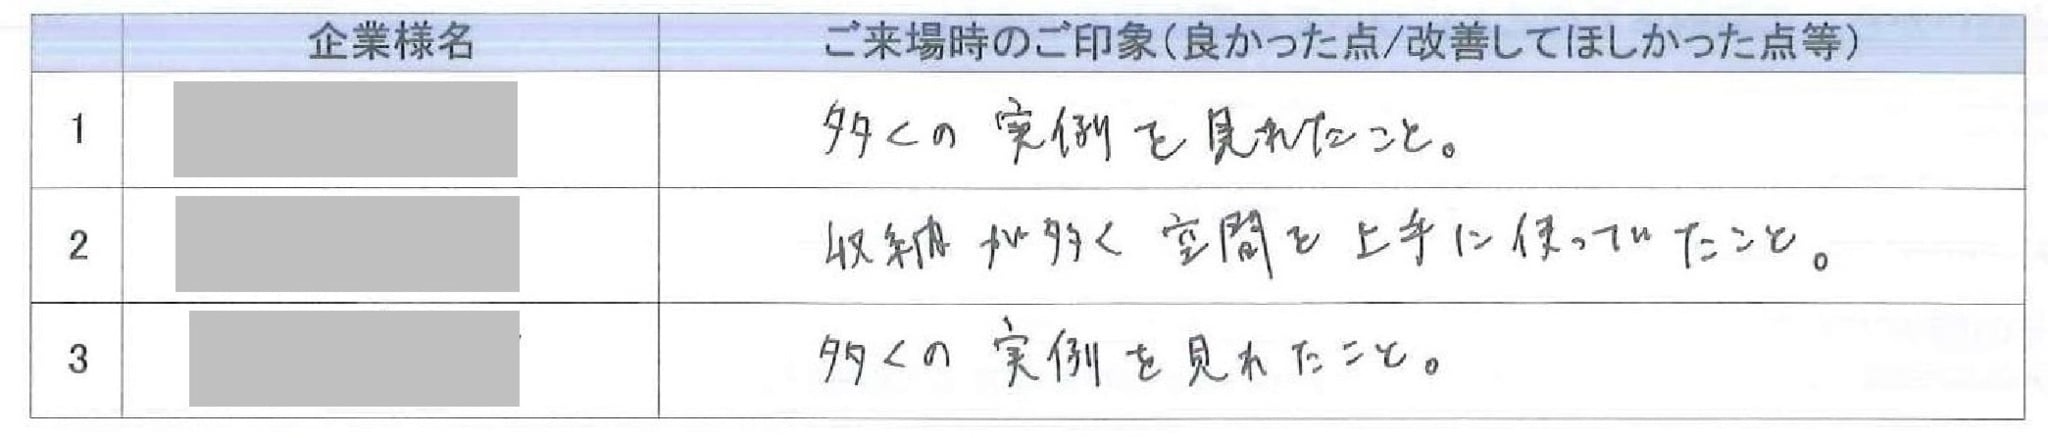 企業様名 ご来場時のご印象(良かった点/改善してほしかった点等)
1 多くの実例を見れたこと。
2 収納が多く空間を上手に使っていたこと。
3 多くの実例を見れたこと。